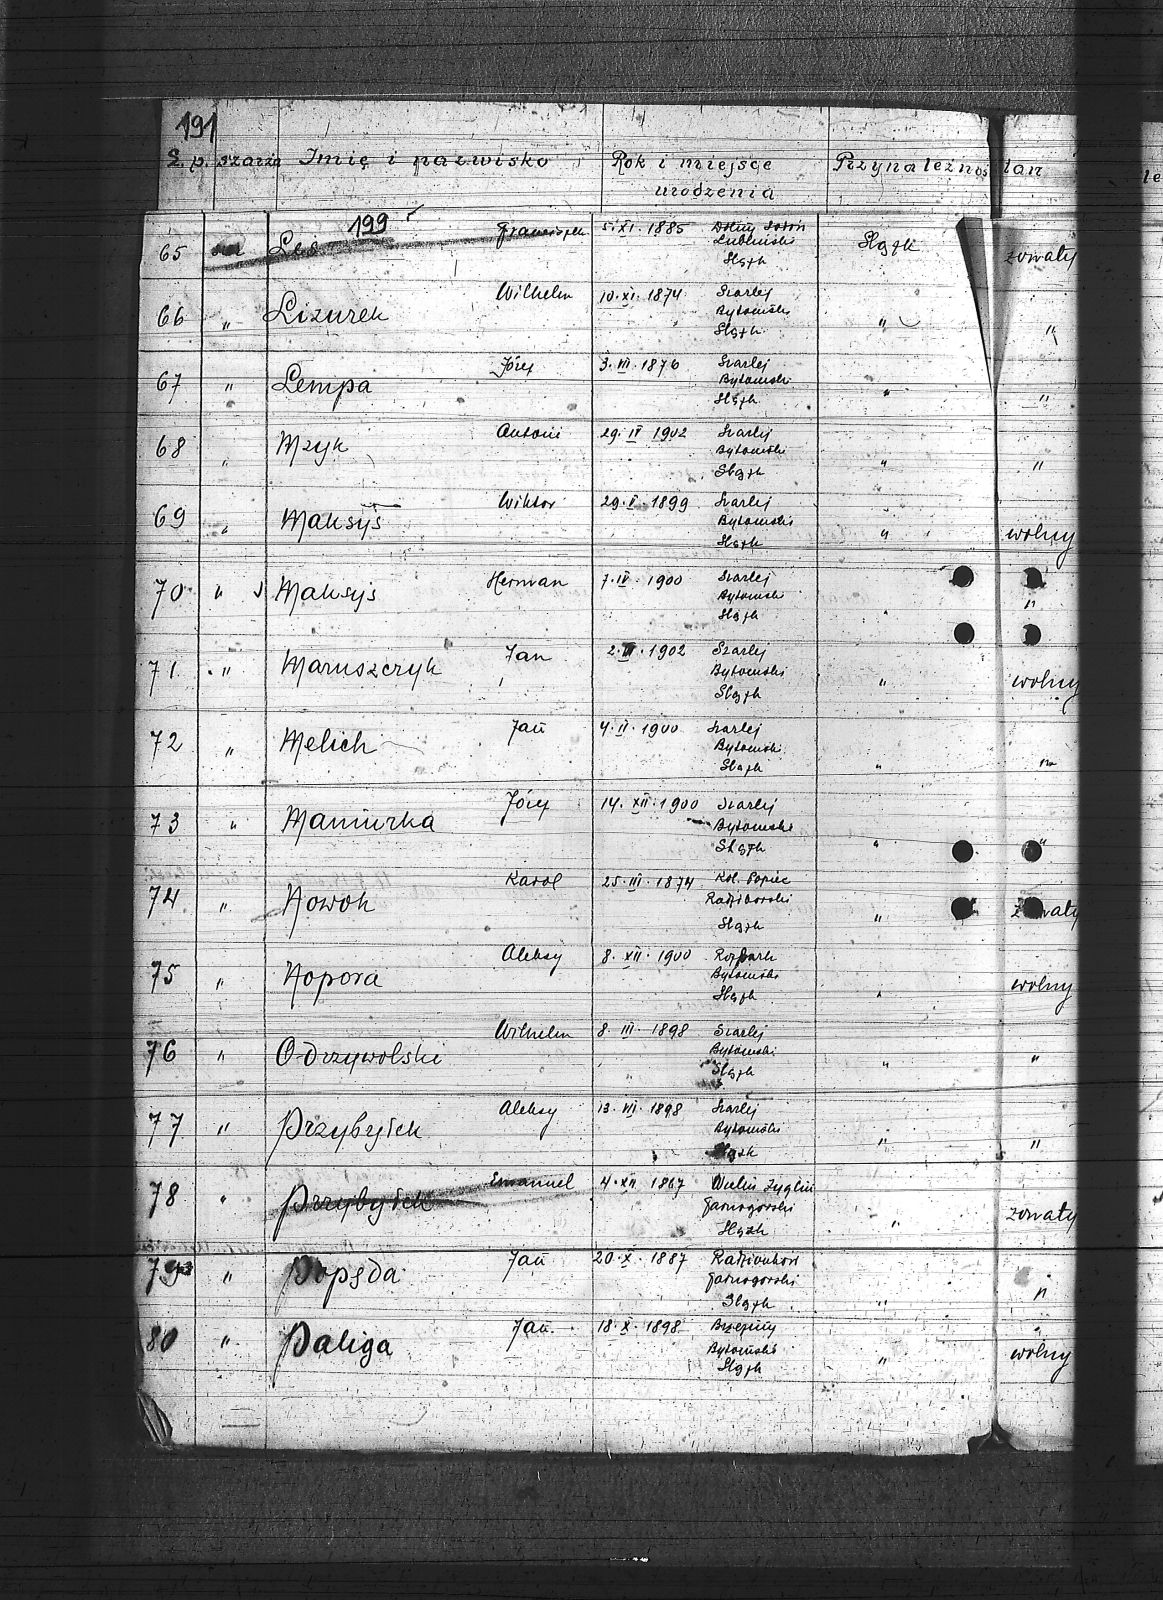 191
L. p. szarża Imię i nazwisko Rok i miejsce urodzenia Przynależnoś tan
199
65 Les Franciszek 5·XI·1885 Lubliniecki Śląsk Śląsk żonaty
66 " Lizurek Wilhelm 10·XI·1874 Szarlej Bytomski Śląsk " "
67 " Lempa Józef 3·III·1876 Szarlej Bytomski Śląsk " "
68 " Mzyk Antoni 29·IV 1902 Szarlej Bytomski Śląsk " "
69 " Maksyś Wiktor 29·X·1899 Szarlej Bytomski Śląsk " wolny
70 " Maksyś Herman 7·IV·1900 Szarlej Bytomski Śląsk " "
71 " Maruszczyk Jan 2·1902 Szarlej Bytomski Śląsk " wolny
72 " Melich Jan 4·II·1900 Szarlej Bytomski Śląsk " "
73 " Maniurka Józef 14·XII·1900 Szarlej Bytomski Śląsk " "
74 " Nowok Karol 25·III·1874 Kol. Popiec Raciborski Śląsk " żonaty
75 " Nopora Aleksy 8·XII·1900 Rozbark Bytomski Śląsk " wolny
76 " Odrzywolski Wilhelm 8·III·1898 Szarlej Bytomski Śląsk " "
77 " Przybyłek Aleksy 13·VII·1898 Szarlej Bytomski Śląsk " "
78 " Przybyłek Emanuel 4·XII·1867 Wielki Zyglin Tarnogórski Śląsk " żonaty
79 " Popęda Jan 20·X·1887 Radzionków Tarnogórski Śląsk " "
80 " Paliga Jan 18·X·1898 Brzeziny Bytomski Śląsk " wolny